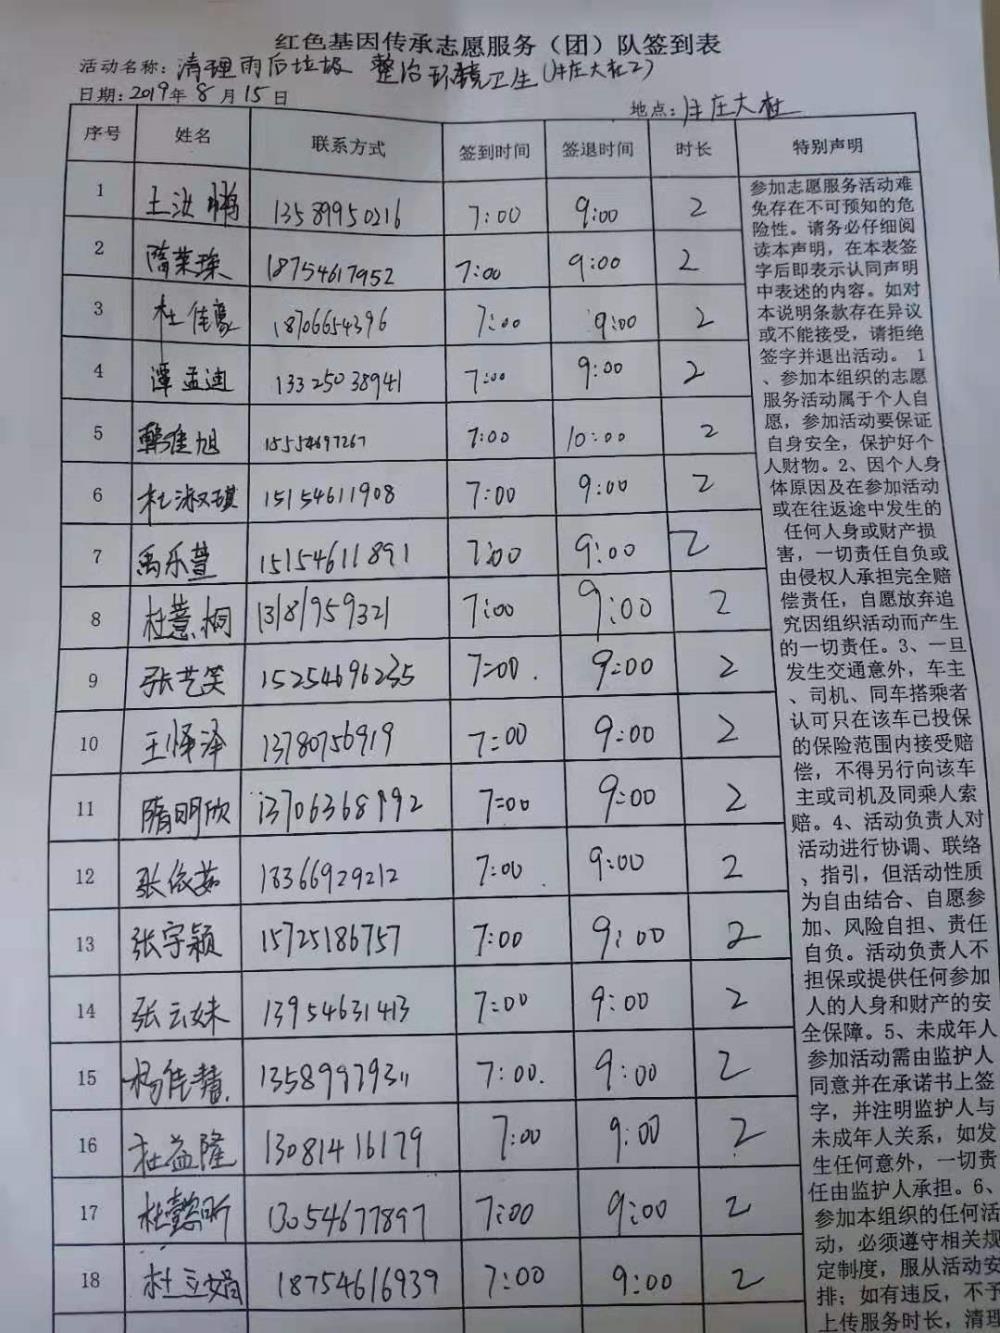 红色基因传承志愿服务（团）队签到表
活动名称：清理雨后垃圾 整治环境卫生（牛庄大杜2）
日期：2019年8月15日
地点：牛庄大杜
序号 姓名 联系方式 签到时间 签退时间 时长 特别声明
1 王洪鹏 13589950216 7:00 9:00 2
2 隋荣琛 18754617952 7:00 9:00 2
3 杜佳豪 18706654396 7:00 9:00 2
4 谭孟迪 13325038941 7:00 9:00 2
5 旭 15554697267 7:00 10:00 2
6 杜淑琪 15154611908 7:00 9:00 2
7 禹乐萱 15154611891 7:00 9:00 2
8 杜慧桐 13181959321 7:00 9:00 2
9 张艺笑 15254696235 7:00 9:00 2
10 王怿泽 13780756919 7:00 9:00 2
11 隋明欣 13706368992 7:00 9:00 2
12 张依茹 18366929212 7:00 9:00 2
13 张宇颖 15725186757 7:00 9:00 2
14 张云妹 13954631413 7:00 9:00 2
15 杨佳慧 13589979311 7:00 9:00 2
16 杜益隆 13081416179 7:00 9:00 2
17 杜懿昕 13054677897 7:00 9:00 2
18 杜立娟 18754616939 7:00 9:00 2
参加志愿服务活动难
免存在不可预知的危
险性。请务必仔细阅
读本声明，在本表签
字后即表示认同声明
中表述的内容。如对
本说明条款存在异议
或不能接受，请拒绝
签字并退出活动。1
、参加本组织的志愿
服务活动属于个人自
愿，参加活动要保证
自身安全，保护好个
人财物。2、因个人身
体原因及在参加活动
或在往返途中发生的
任何人身或财产损
害，一切责任自负或
由侵权人承担完全赔
偿责任，自愿放弃追
究因组织活动而产生
的一切责任。3、一旦
发生交通意外，车主
、司机、同车搭乘者
认可只在该车已投保
的保险范围内接受赔
偿，不得另行向该车
主或司机及同乘人索
赔。4、活动负责人对
活动进行协调、联络
、指引，但活动性质
为自由结合、自愿参
加、风险自担、责任
自负。活动负责人不
担保或提供任何参加
人的人身和财产的安
全保障。5、未成年人
参加活动需由监护人
同意并在承诺书上签
字，并注明监护人与
未成年人关系，如发
生任何意外，一切责
任由监护人承担。6、
参加本组织的任何活
动，必须遵守相关规
定制度，服从活动安
排；如有违反，不予
上传服务时长，清理